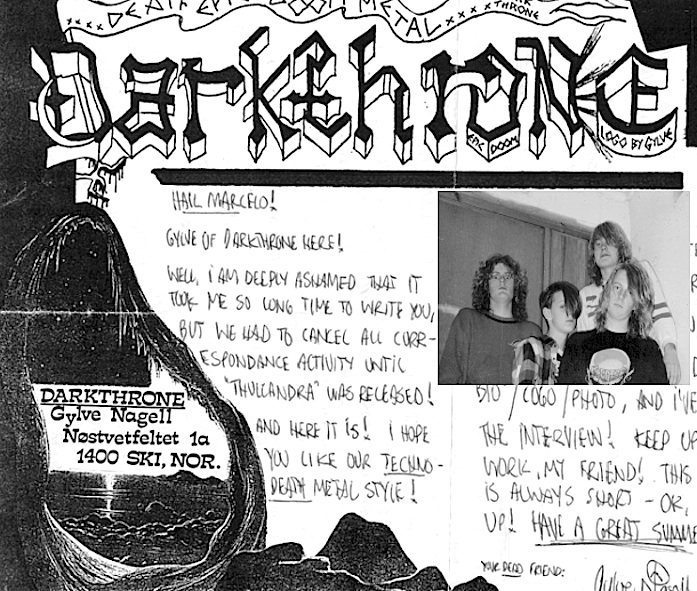 ..DEATH EPIC DOOM METAL xxxx
THRONE
DARKTHRONE
EPIC DOOM
LOGO BY GYLVE
HAIL MARCELO!
GYLVE OF DARKTHRONE HERE!
WELL, I AM DEEPLY ASHAMED THAT IT
TOOK ME SO LONG TIME TO WRITE YOU,
BUT WE HAD TO CANCEL ALL CORR-
ESPONDANCE ACTIVITY UNTIL
"THULCANDRA" WAS RELEASED!
AND HERE IT IS! I HOPE
YOU LIKE OUR TECHNO-
DEATH METAL STYLE!
DARKTHRONE
Gylve Nagell
Nøstvetfeltet 1a
1400 SKI, NOR.
BIO/LOGO/PHOTO, AND I'VE
THE INTERVIEW! KEEP UP
WORK, MY FRIEND! THIS
IS ALWAYS SHORT - OK,
UP! HAVE A GREAT SUMME
YOUR DEAD FRIEND:
Gylve Nagell